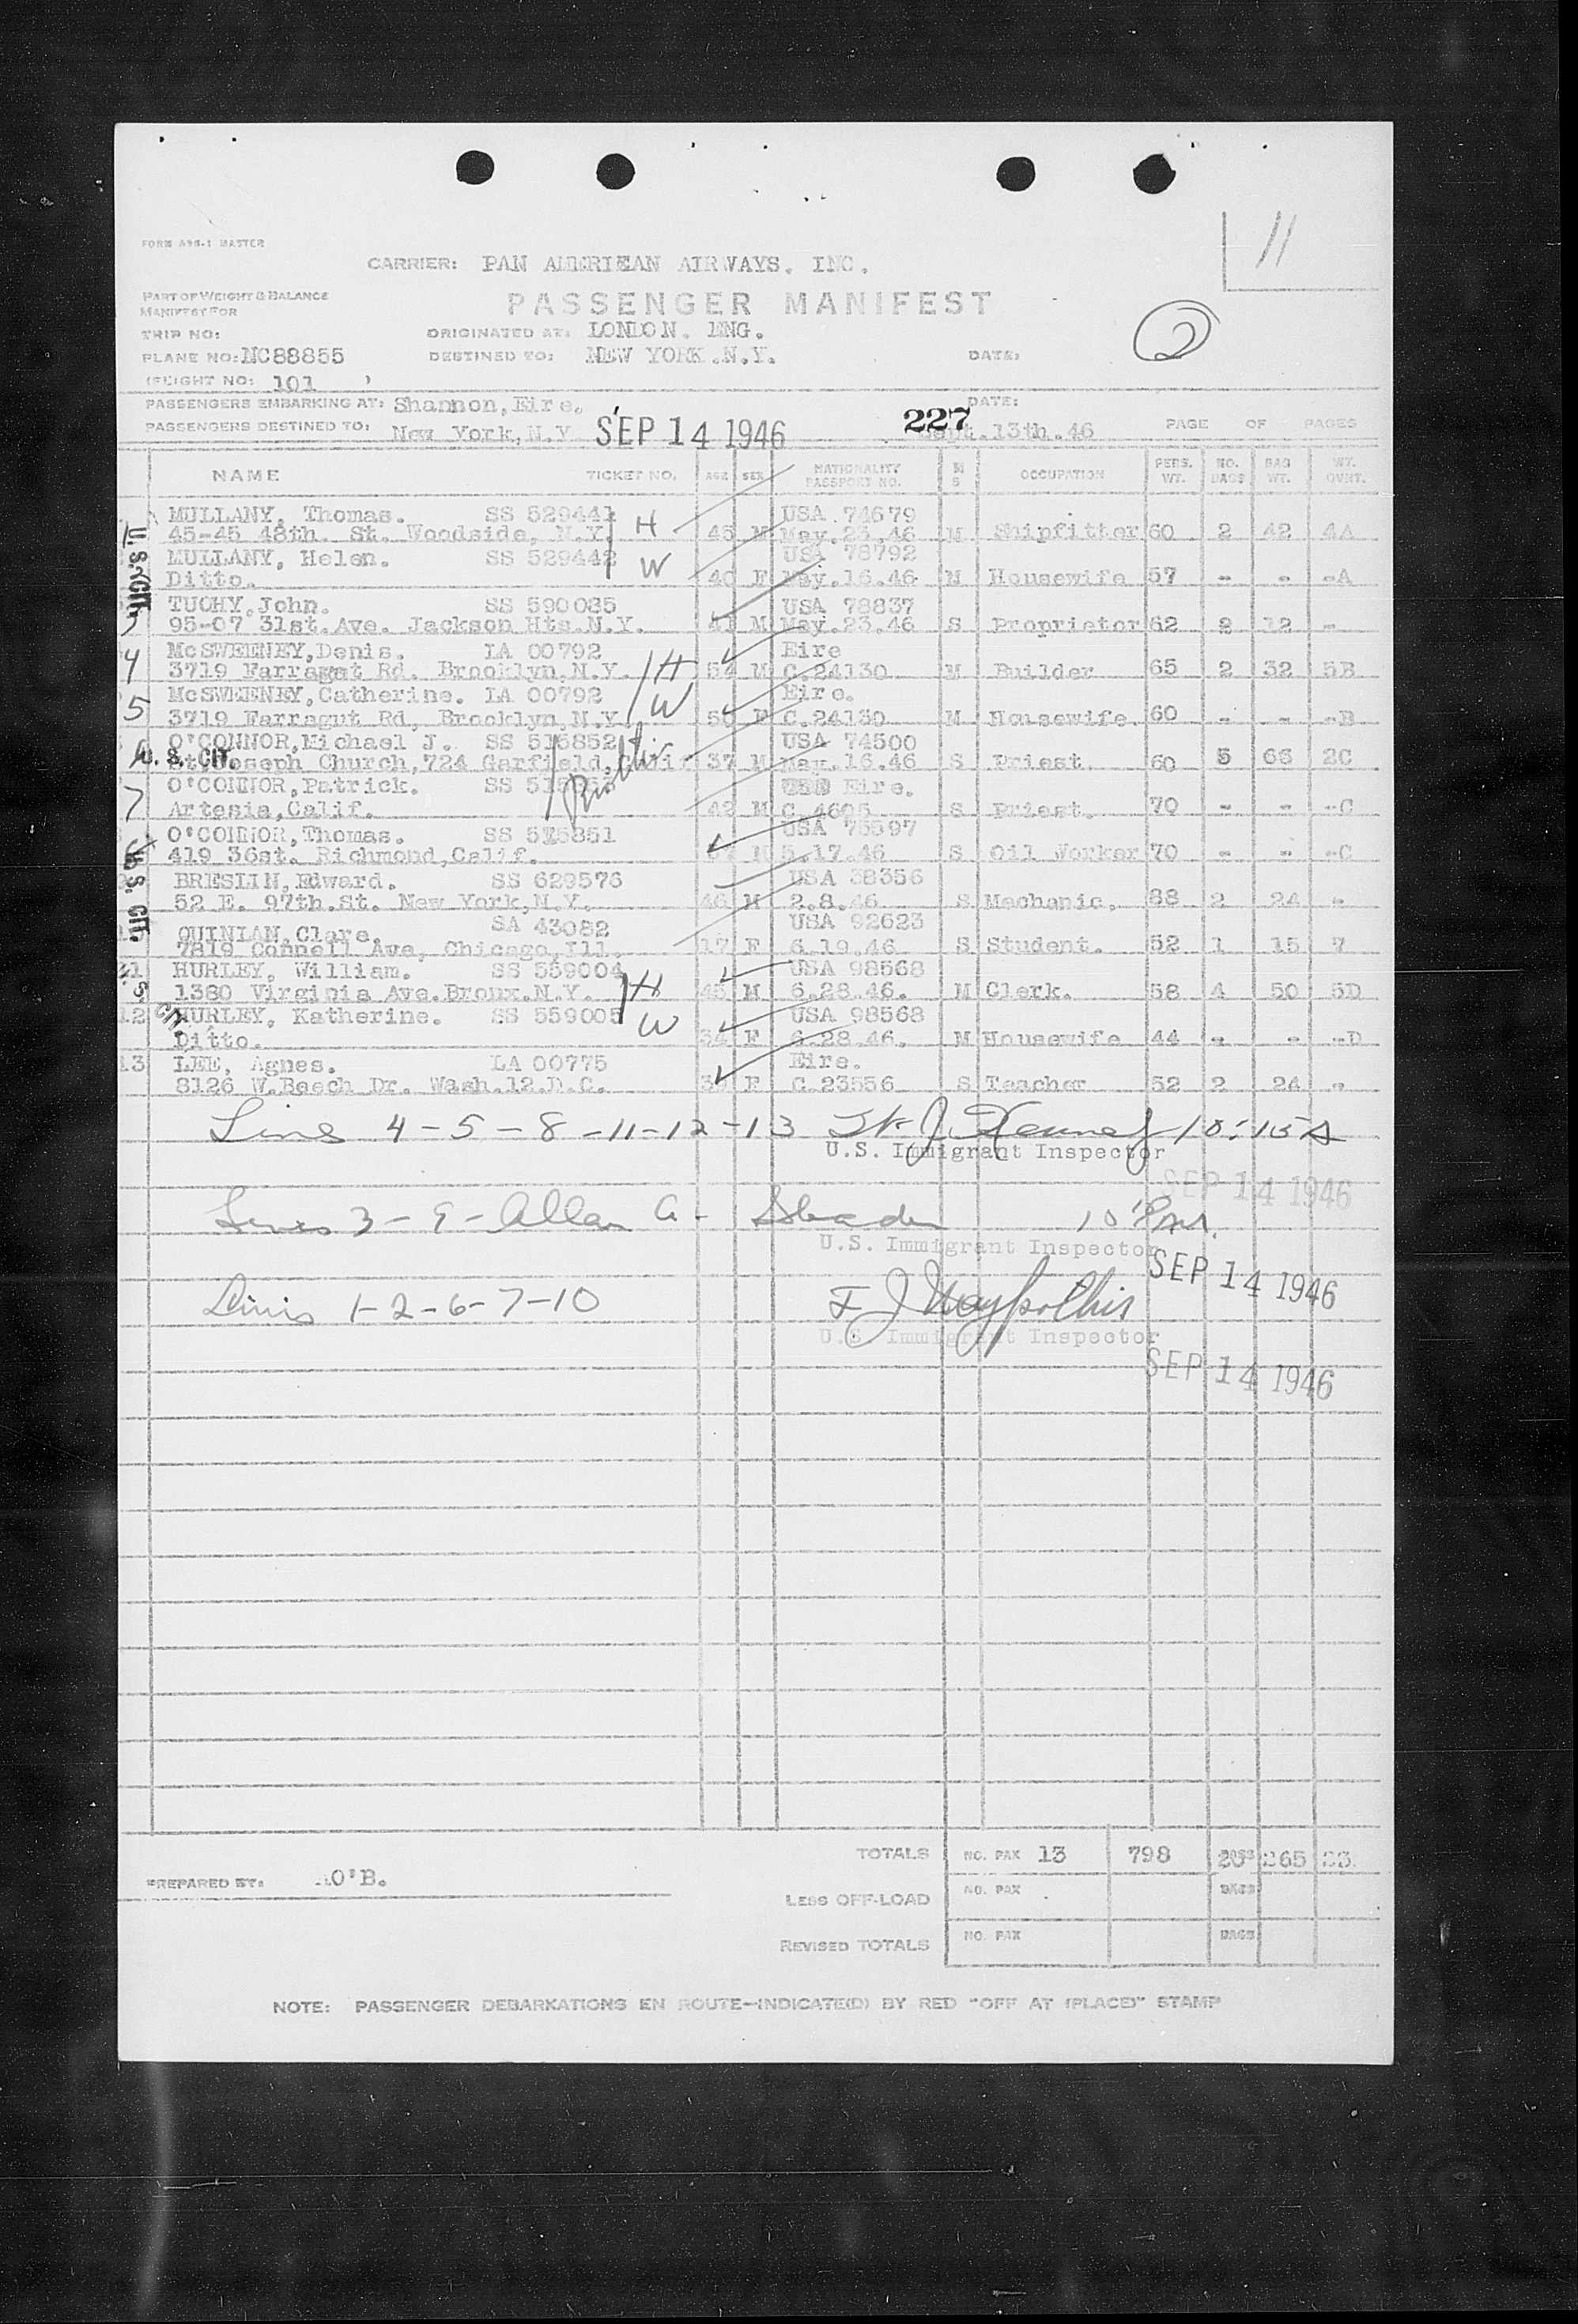 11
FORM A96-1 MASTER
CARRIER: PAN AMERIEAN AIRWAYS. INC.
PART OF WEIGHT & BALANCE
MANIFEST FOR
PASSENGER MANIFEST
2
TRIP NO: ORIGINATED AT: LONDON. ENG.
PLANE NO: NC88855 DESTINED TO: NEW YORK.N.Y. DATE:
(FLIGHT NO: 101 )
PASSENGERS EMBARKING AT: Shannon,Eire. DATE:
PASSENGERS DESTINED TO: New York,N.Y SEP 14 1946 227 Sept.13th.46 PAGE OF PAGES
NAME TICKET NO. AGE SEX NATIONALITY PASSPORT NO. M S OCCUPATION PERS. WT. NO. BAGS BAG WT. WT. OVNT.
U.S. CIT.
MULLANY, Thomas. SS 529441 H USA 74679
45-45 48th. St. Woodside, N.Y. 45 M May.23.46 M Shipfitter 60 2 42 4A
MULLANY, Helen. SS 529442 W USA 78792
Ditto. 40 F May.16.46 M Housewife 57 - - -A
TUOHY,John. SS 590085 USA 78837
3 95-07 31st.Ave. Jackson Hts.N.Y. 41 M May.23.46 S Proprietor 62 2 12 -
McSWEENEY,Denis. LA 00792 Eire
4 3719 Farragut Rd. Brooklyn,N.Y. H 54 M C.24130 M Builder 65 2 32 5B
McSWEENEY,Catherine. LA 00792 W Eire.
5 3719 Farragut Rd, Brooklyn,N.Y. 50 F C.24130 M Housewife. 60 - - -B
O'CONNOR,Michael J. SS 515852 USA 74500
U. S. CIT. St Joseph Church,724 Garfield,Calif 37 M May.16.46 S Priest 60 5 66 2C
O'CONNOR,Patrick. SS Eire.
7 Artesia,Calif. 42 M C.4605 S Priest. 70 - - -C
O'CONNOR,Thomas. SS 515851 USA 75597
419 36st. Richmond,Calif. M 5.17.46 S Oil Worker 70 - - -C
U. S. CIT.
BRESLIN,Edward. SS 629576 USA 38356
52 E. 97th.St. New York,N.Y. 46 M 2.8.46 S Mechanic. 88 2 24 -
QUINLAN,Clare. SA 43082 USA 92623
7819 Connell Ave, Chicago,Ill. 17 F 6.19.46 S Student. 52 1 15 7
HURLEY, William. SS 559004 USA 98568
1380 Virginia Ave.Bronx.N.Y. H 45 M 6.28.46. M Clerk. 58 4 50 5D
12 HURLEY, Katherine. SS 559005 USA 98568
Ditto. W 34 F 6.28.46. M Housewife 44 - - -D
13 LEE, Agnes. LA 00775 Eire.
8126 W.Beech Dr. Wash.12.D.C. F C.23556 S Teacher 52 2 24 -
Lines 4-5-8-11-12-13 10:15A
U.S. Immigrant Inspector
SEP 14 1946
Lines 3-9- Allan G.
U.S. Immigrant Inspector
SEP 14 1946
Lines 1-2-6-7-10
U.S. Immigrant Inspector
SEP 14 1946
TOTALS NO. PAX 13 798 20 265 23
PREPARED BY: AO'B. NO. PAX BAGS
LESS OFF-LOAD
REVISED TOTALS NO. PAX BAGS
NOTE: PASSENGER DEBARKATIONS EN ROUTE-INDICATE(D) BY RED "OFF AT (PLACE)" STAMP